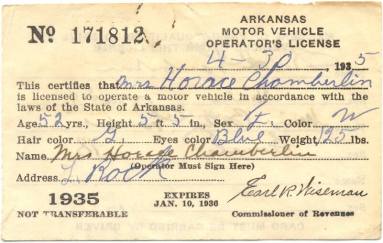 ARKANSAS
No 171812. MOTOR VEHICLE
OPERATOR'S LICENSE
4-30 1935
This certifies that Mrs Horace Chamberlin
is licensed to operate a motor vehicle in accordance with the
laws of the State of Arkansas.
Age 52 yrs., Height 5 ft. 5 in., Sex F Color W
Hair color G Eyes color Blue Weight 125 lbs.
Name Mrs Horace Chamberlin
(Operator Must Sign Here)
Address L Rock
1935 EXPIRES Earl R. Wiseman
NOT TRANSFERABLE JAN. 10, 1936 Commissioner of Revenues